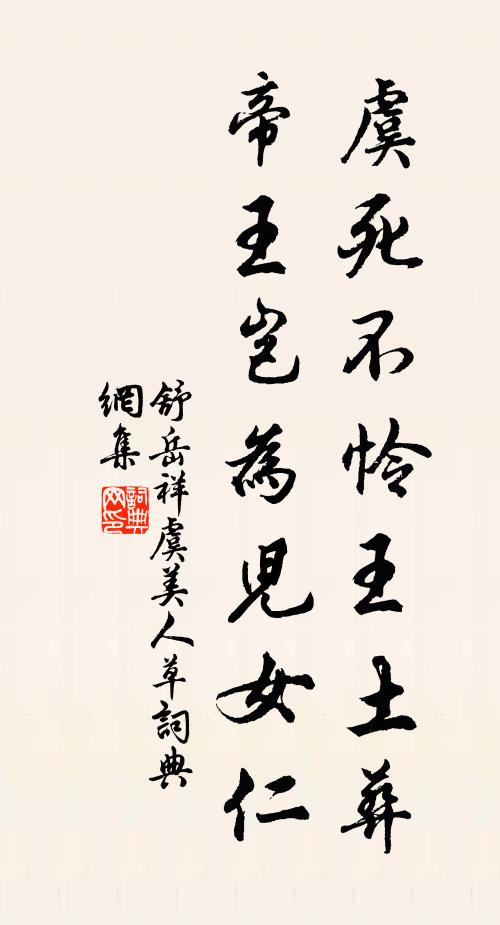 虞死不怜王土彝
帝王岂為児女仁
舒岳祥虞美人草詞典
網集
詞典
网印